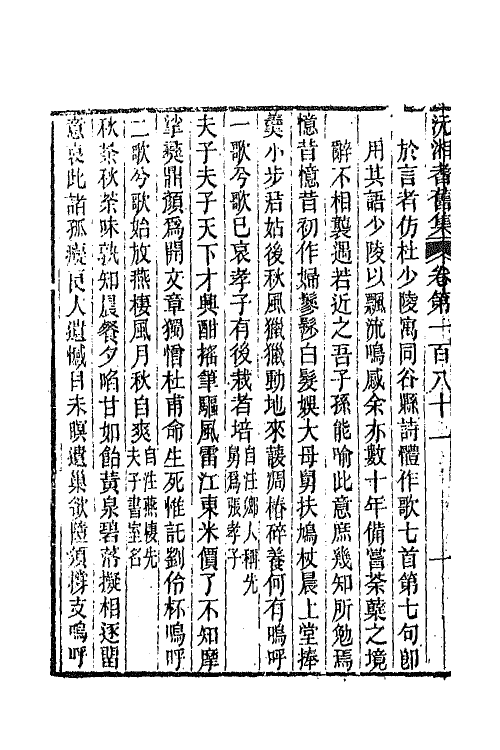 沅湘耆舊集 卷第一百八十一 一
於言者仿杜少陵寓同谷縣詩體作歌七首第七句卽
用其語少陵以飄流鳴感余亦數十年備嘗荼蘗之境
辭不相襲遇若近之吾子孫能喻此意庶幾知所勉焉
憶昔憶昔初作婦鬖鬖白髮娛大母舅扶鳩杖晨上堂捧
羹小步君姑後秋風獵獵動地來萲凋椿碎養何有嗚呼
一歌兮歌已哀孝子有後栽者培自注鄉人稱先舅爲張孝子
夫子夫子天下才興酣搖筆驅風雷江東米價了不知摩
挲彝鼎顏爲開文章獨憎杜甫命生死惟託劉伶杯嗚呼
二歌兮歌始放燕棲風月秋自爽自注燕棲先夫子書室名
秋荼秋荼味孰知晨餐夕啗甘如飴黃泉碧落擬相逐閨
意哀此諸孤癡民人遺憾目未瞑遺巢欲墮須撐支嗚呼